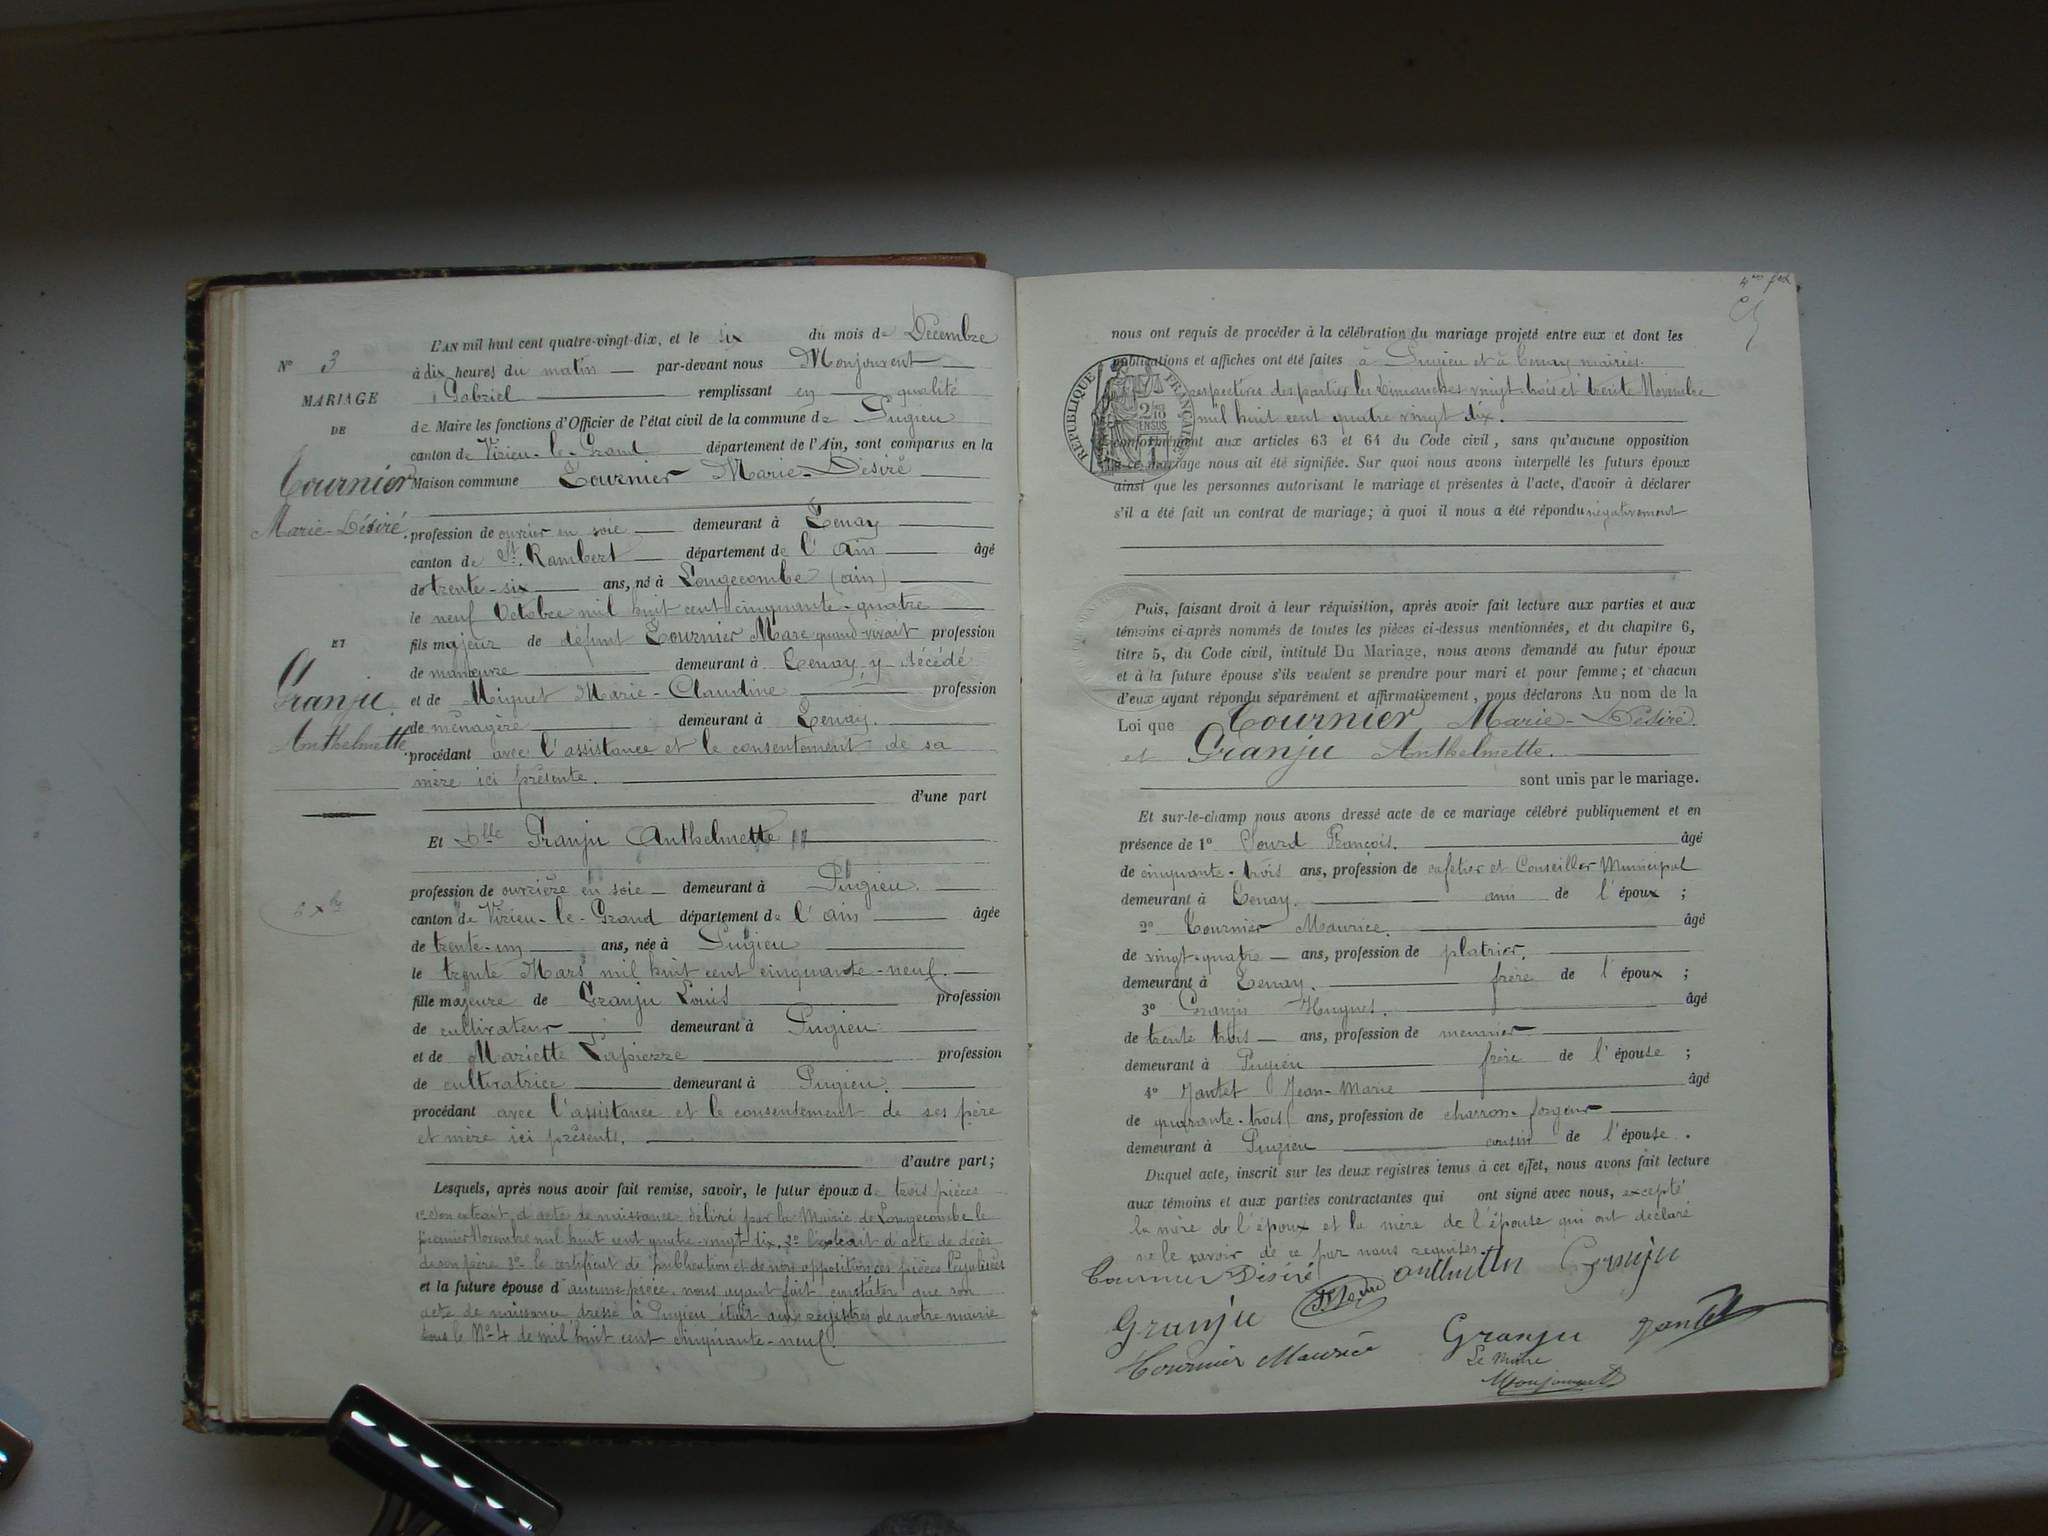 N° 3
MARIAGE
DE
Tournier
Marie-Désiré.
ET
Granju
Anthelmette
6 xbre
L'AN mil huit cent quatre-vingt-dix, et le six du mois de Décembre
à dix heures du matin par-devant nous Monjouvent
Gabriel remplissant en qualité
de Maire les fonctions d'Officier de l'état civil de la commune de Pugieu
canton de Virieu-le-Grand département de l'Ain, sont comparus en la
Maison commune Tournier Marie-Désiré
profession de ouvrier en soie demeurant à Tenay
canton de St. Rambert département de l'ain âgé
de trente-six ans, né à Longecombe (ain)
le neuf Octobre mil huit cent cinquante-quatre
fils majeur de défunt Tournier Marc quand vivait profession
de manœuvre demeurant à Tenay, y décédé
et de Miguet Marie-Claudine profession
de ménagère demeurant à Tenay.
procédant avec l'assistance et le consentement de sa
mère ici présente.
d'une part
Et Dlle Granju Anthelmette
profession de ouvrière en soie demeurant à Pugieu.
canton de Virieu-le-Grand département de l'ain âgée
de trente-un ans, née à Pugieu
le trente Mars mil huit cent cinquante-neuf.
fille majeure de Granju Louis profession
de cultivateur demeurant à Pugieu
et de Mariette Lapierre profession
de cultivatrice demeurant à Pugieu.
procédant avec l'assistance et le consentement de ses père
et mère ici présents.
d'autre part;
Lesquels, après nous avoir fait remise, savoir, le futur époux de trois pièces
1° Son extrait d'acte de naissance délivré par la Mairie de Longecombe le
premier Novembre mil huit cent quatre-vingt dix. 2° l'extrait d'acte de décès
de son père 3° le certificat de publication et de non opposition ces pièces légalisées
et la future épouse d'aucune pièce nous ayant fait constater que son
acte de naissance dressé à Pugieu était aux registres de notre mairie
sous le N° 4 de mil huit cent cinquante-neuf.
nous ont requis de procéder à la célébration du mariage projeté entre eux et dont les
publications et affiches ont été faites à Pugieu et à Tenay mairies
respectives des parties les Dimanches vingt-trois et trente Novembre
mil huit cent quatre vingt dix.
RÉPUBLIQUE FRANÇAISE
conformément aux articles 63 et 64 du Code civil, sans qu'aucune opposition
à ce mariage nous ait été signifiée. Sur quoi nous avons interpellé les futurs époux
ainsi que les personnes autorisant le mariage et présentes à l'acte, d'avoir à déclarer
s'il a été fait un contrat de mariage; à quoi il nous a été répondu négativement
Puis, faisant droit à leur réquisition, après avoir fait lecture aux parties et aux
témoins ci-après nommés de toutes les pièces ci-dessus mentionnées, et du chapitre 6,
titre 5, du Code civil, intitulé Du Mariage, nous avons demandé au futur époux
et à la future épouse s'ils veulent se prendre pour mari et pour femme; et chacun
d'eux ayant répondu séparément et affirmativement, nous déclarons Au nom de la
Loi que Tournier Marie-Désiré.
et Granju Anthelmette.
sont unis par le mariage.
Et sur-le-champ nous avons dressé acte de ce mariage célébré publiquement et en
présence de 1° Sourd François. âgé
de cinquante-trois ans, profession de cafetier et Conseiller Municipal
demeurant à Tenay. ami de l'époux ;
2° Tournier Maurice. âgé
de vingt-quatre ans, profession de platrier.
demeurant à Tenay. frère de l'époux ;
3° Granju Hugues. âgé
de trente trois ans, profession de meunier
demeurant à Pugieu frère de l'épouse ;
4° Jantet Jean-Marie âgé
de quarante-trois ans, profession de charron-forgeur
demeurant à Pugieu cousin de l'épouse.
Duquel acte, inscrit sur les deux registres tenus à cet effet, nous avons fait lecture
aux témoins et aux parties contractantes qui ont signé avec nous, excepté
la mère de l'époux et la mère de l'épouse qui ont déclaré
ne le savoir de ce par nous requises.
Tournier Désiré Granju
Granju
Tournier Maurice Granju Jantet
Le Maire
Monjouvent